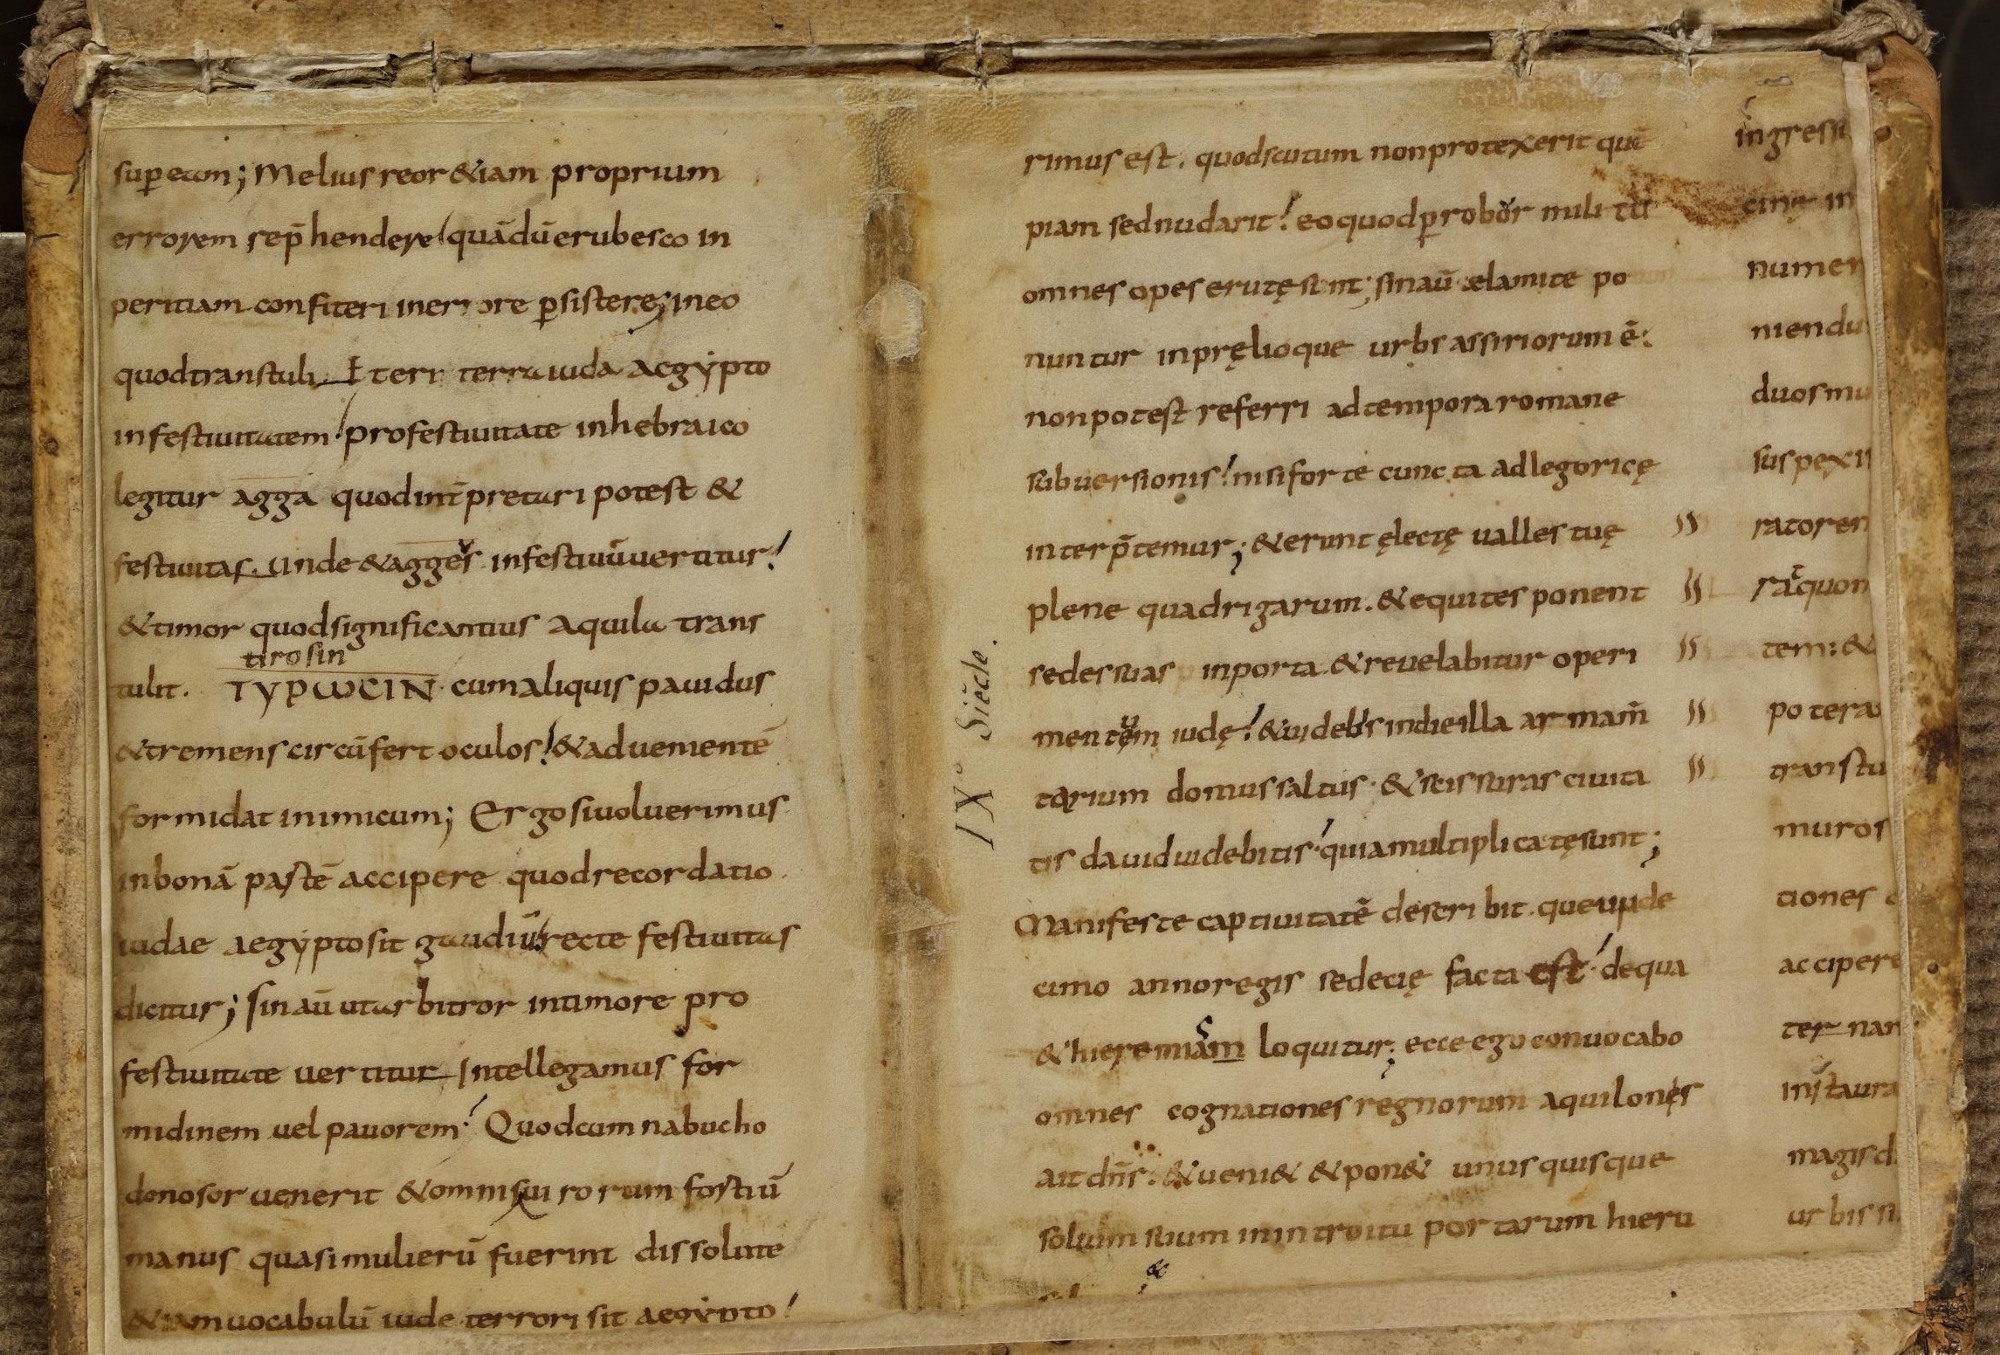 sup̄ eam; Melius reor &iam proprium
errorem rep̄hendere quā dū erubesco in
peritiam confiteri in errore ꝑsistere; in eo
quod transtuli. Et erit terra iuda aegẏpto
in festiuitatem / pro festiuitate in hebraico
legitur agga quod int̄pretari potest &
festiuitas. Unde & agges in festiuū uertitur!
&timor quod significantius aquila trans
tirosin
tulit. ΓΥΡωCΙΝ cum aliquis pauidus
&tremens circūfert oculos! & aduenientē
formidat inimicum; Ergo si uoluerimus
in bonā partē accipere quod recordatio
iudae aegẏpto sit gaudiū! recte festiuitas
dicitur; sin aū ut arbitror in timore pro
festiuitate uertitur. Intellegamus for
midinem uel pauorem! Quod cum nabucho
donosor uenerit & omnis uirorum fortiū
manus quasi mulierū fuerint dissolute
&iam uocabulū iude terrori sit aegẏpto!
rimus est. quod scutum non protexerit quē
piam sed nudarit! eo quod ꝑ robor militū
omnes opes erutę sunt; sin aū ælamite po
nuntur in pręlio que urbs assiriorum ē:
non potest referri ad tempora romane
subuersionis! nisi forte cuncta adlegoricę
interp̄temur; & erunt ęlectę ualles tuę
plene quadrigarum. & equites ponent
sedes suas in porta. & reuelabitur operi
mentum iudę! & uidebis in die illa armam̄
tarium domus saltus. & scissuras ciuita
tis dauid uidebitis! quia multiplicatę sunt;
Manifeste captiuitatē describit. que unde
cimo anno regis sedecię facta est! de qua
& hieremias loquitur; ecce ego conuocabo
omnes cognationes regnorum aquilonis
ait dn̄s: & ueni& & pon& unus quisque
solium suum in introitu portarum hieru
IXᵉ Siècle.
ingressi
cinę in
numer
niendu
duos mu
suspexi
ratorem
ra quon
tem: &
potera
transtu
muros
tiones
accipere
ter nam
instaura
magis d
urbis su